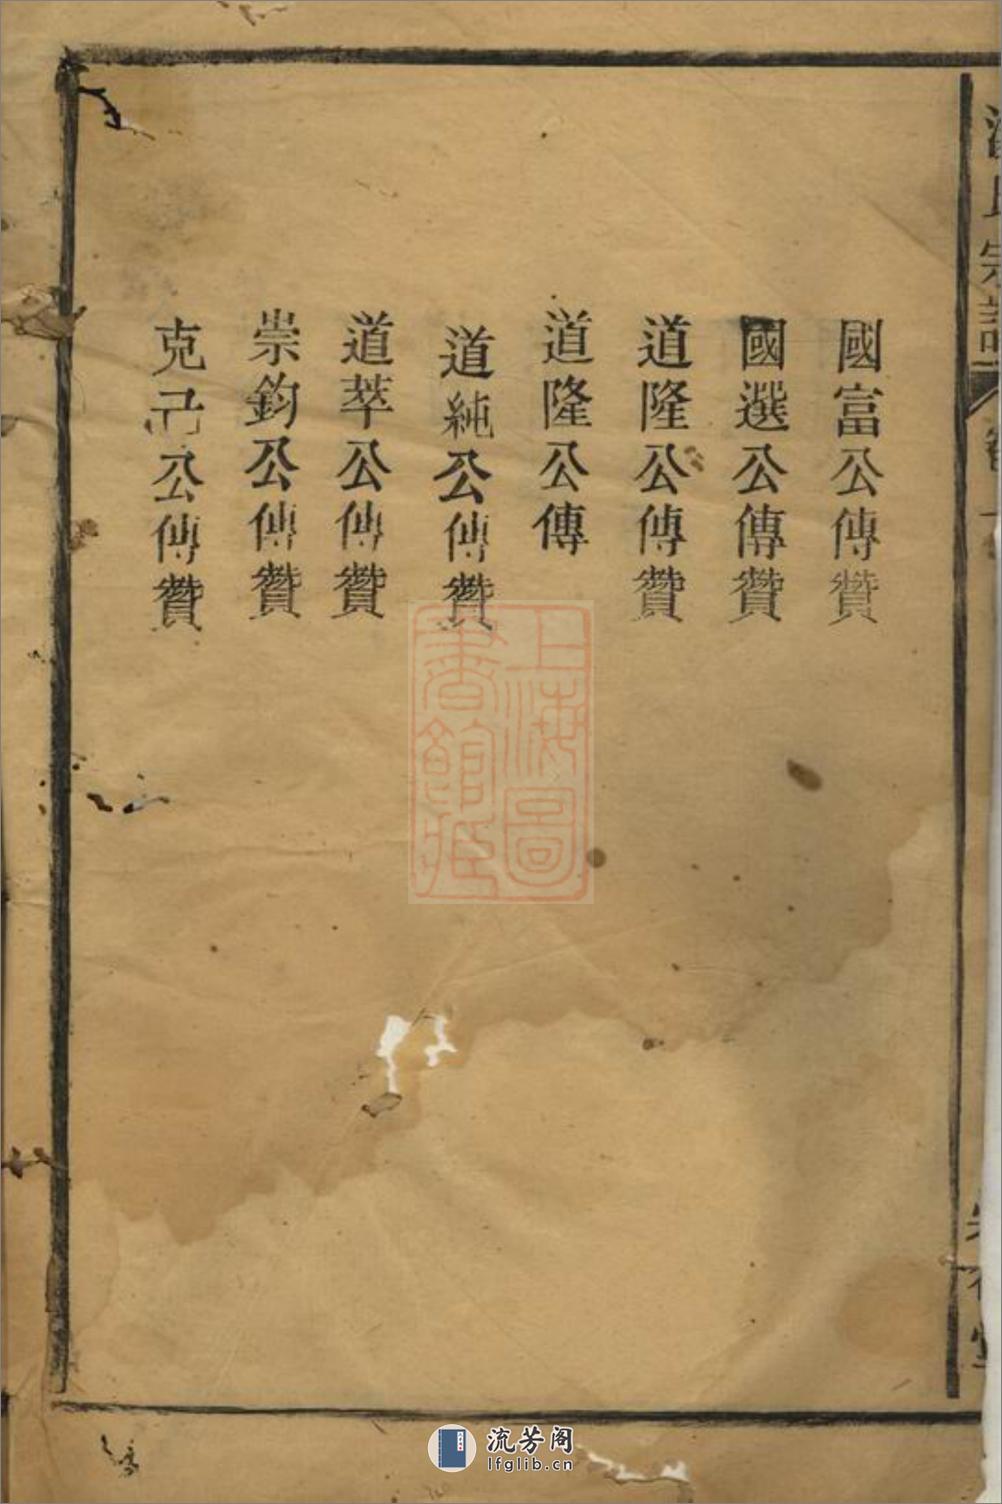 國富公傳贊
國選公傳贊
道隆公傳贊
道隆公傳
道純公傳贊
道萃公傳贊
崇鈞公傳贊
克己公傳贊
氏宗譜
上海圖書館藏
流芳阁
lfglib.cn